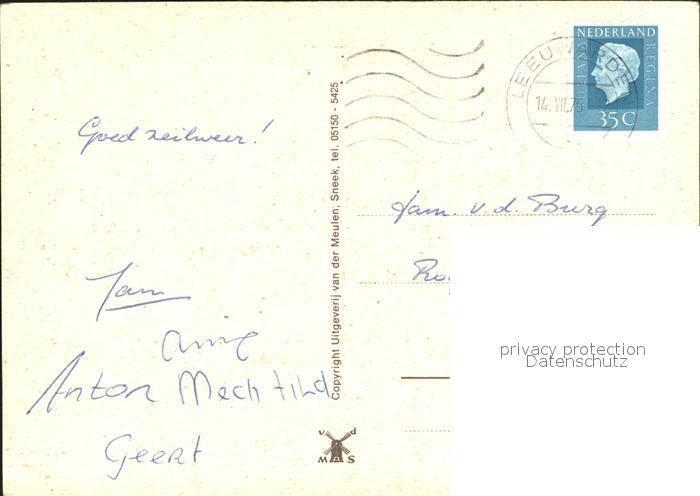 NEDERLAND
JULIANA REGINA
35 C
LEEUWARDEN
14.VII.75
Goed zeilweer!
Fam. v.d. Burg
Jan
Anton Mechtild
Geert
Copyright Uitgeverij van der Meulen, Sneek, tel. 05150 - 5425
v d
MAS
privacy protection
Datenschutz